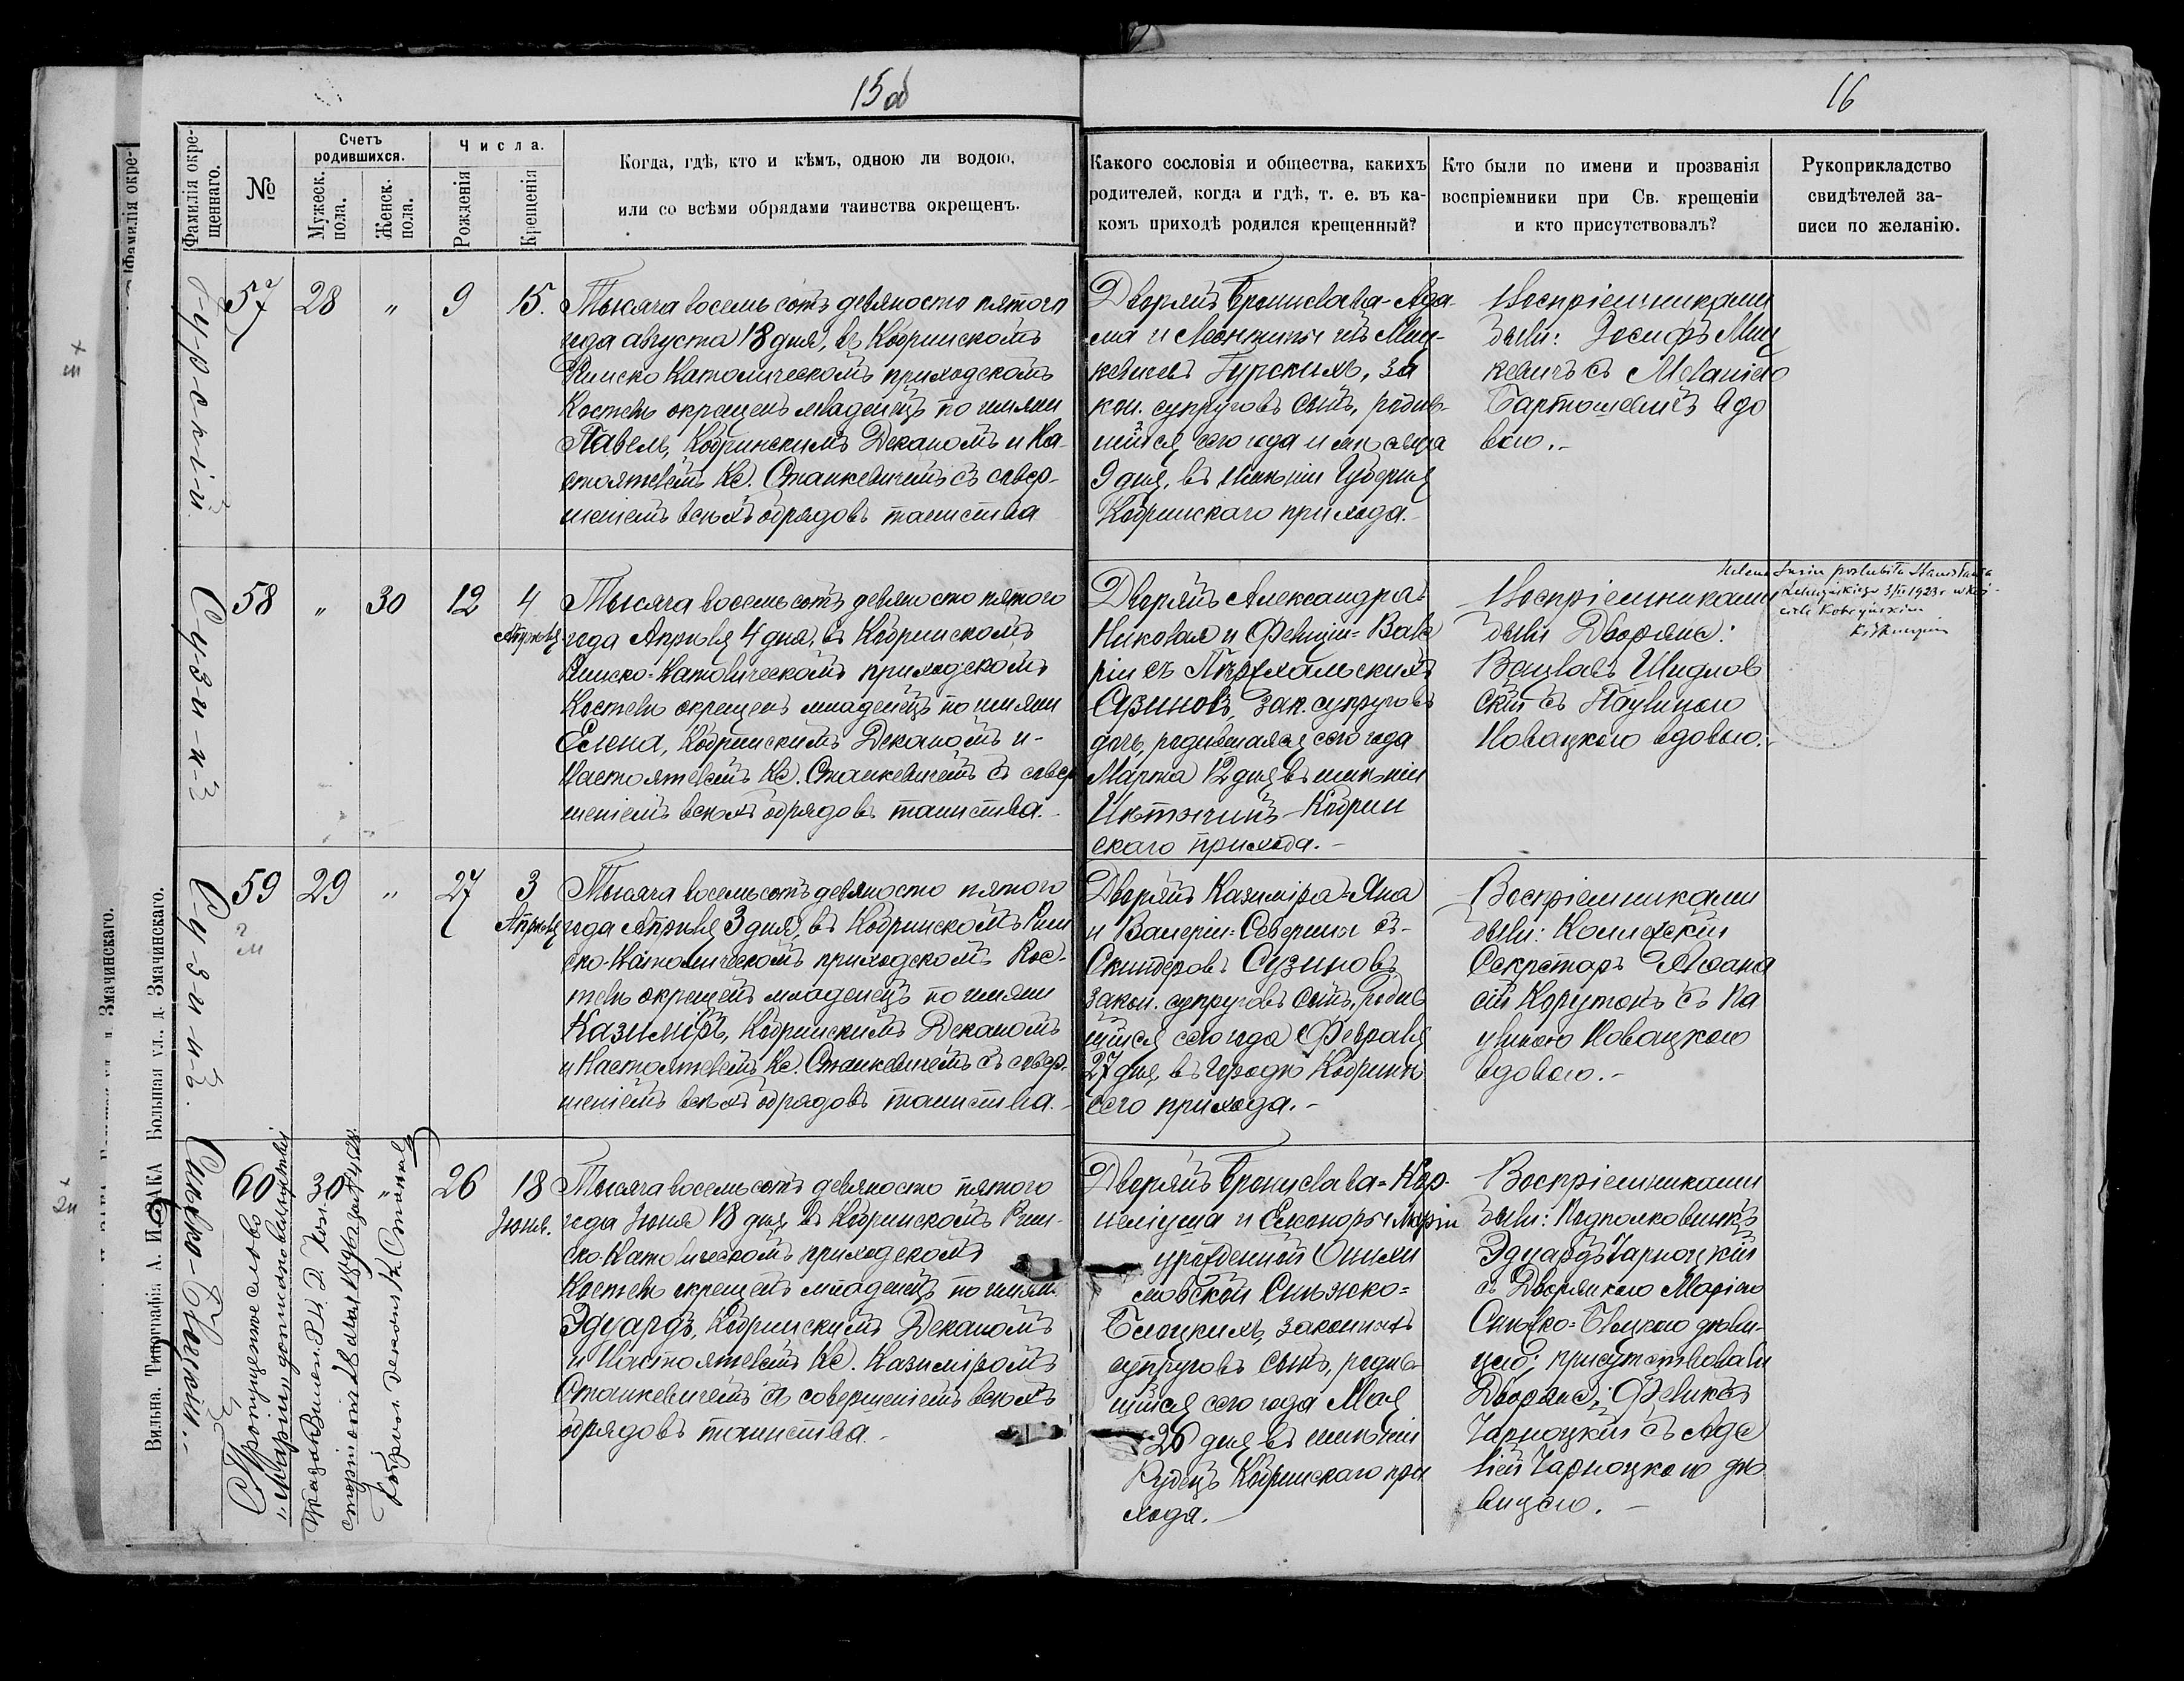 15об
16
Фамилія окре-
щеннаго.
№
Счетъ
родившихся.
Мужеск.
пола.
Женск.
пола.
Числа.
Рожденія
Крещенія
Когда, гдѣ, кто и кѣмъ, одною ли водою,
или со всѣми обрядами таинства окрещенъ.
Какого сословія и общества, какихъ
родителей, когда и гдѣ, т. е. въ ка-
комъ приходѣ родился крещенный?
Кто были по имени и прозванія
воспріемники при Св. крещеніи
и кто присутствовалъ?
Рукоприкладство
свидѣтелей за-
писи по желанію.
Гурскій.
57
28
"
9
15.
Тысяча восемь сотъ девяносто пятого
года августа 18 дня, въ Кобринскомъ
Римско Католическомъ приходскомъ
Костелѣ окрещенъ младенецъ по имяни
Павелъ, Кобринскимъ Деканомъ и На-
стоятелемъ Кс. Станкевичемъ съ совер-
шеніемъ всѣхъ обрядовъ таинства
Дворянъ Бронислава-Ада-
ма и Леонтины изъ Миц-
кевичевъ Гурскихъ, за
кон. супруговъ сынъ, родив-
шійся сего года и мѣсяца
9 дня, въ имѣніи Губерня
Кобринскаго прихода.
Воспріемниками
были: Іосифъ Миц
кевичъ съ Меланіею
Бартошевичъ вдо
вою.-
Сузинъ
58
"
30
12
4
Апрѣля
Тысяча восемь сотъ девяносто пятого
года Апрѣля 4 дня, въ Кобринскомъ
Римско-Католическомъ приходскомъ
Костелѣ окрещенъ младенецъ по имяни
Елена, Кобринскимъ Деканомъ и-
Настоятелемъ Кс. Станкевичемъ съ совер
шеніемъ всѣхъ обрядовъ таинства.-
Дворянъ Александра
Николая и Фелиціи-Вале
ріи съ
Сузиновъ, зак. супруговъ
дочь, родившаяся сего года
Марта 12 дня въ имѣніи
Кобрин
скаго прихода.-
Воспріемниками
были Дворяне:
Вацлавъ Шидлов
скій съ Паулиною
Новацкою вдовою.
Helena Suzin poślubiła Stanisława
3/II 1923 r. w Koś-
ciele Kobryńskim
Сузинъ.
59
29
"
27
3
Апрѣля
Тысяча восемьсотъ девяносто пятого
года Апрѣля 3 дня, въ Кобринскомъ Рим
ско-Католическомъ приходскомъ Кос-
телѣ окрещенъ младенецъ по имяни
Казиміръ, Кобринскимъ Деканомъ
и Настоятелемъ Кс. Станкевичемъ съ совер-
шеніемъ всѣхъ обрядовъ таинства.-
Дворянъ Казиміра-Яна
и Валеріи-Северины съ-
Скиндеровъ Сузиновъ
закон. супруговъ сынъ, родив
шійся сего года Февраля
27 дня въ городѣ Кобринѣ
сего прихода.-
Воспріемниками
были: Колежскій
Секретарь Афана
сій Корутокъ съ Па
улиною Новацкою
вдовою.-
Снѣжко-Блоцкій.-
60
30
"
26
18
Іюня.
Пропущенное слово
"Марія" дописано
Тысяча восемь сотъ девяносто пятого
года Іюня 18 дня въ Кобринскомъ Рим-
ско-Католическомъ приходскомъ
Костелѣ окрещенъ младенецъ по имяни
Эдуардъ, Кобринскимъ Деканомъ
и Настоятелемъ Кс. Казиміромъ
Станкевичемъ съ совершеніемъ всѣхъ
обрядовъ таинства.-
Дворянъ Бронислава-Кор-
неліуша и Елеоноры Маріи
урожденной
Снѣжко-
Блоцкихъ, законныхъ
супруговъ сынъ, родив-
шійся сего года Мая
26 дня въ имѣніи
Рудецъ Кобринскаго при
хода.-
Воспріемниками
были: Подполковникъ
Эдуардъ Чарноцкій
съ Дворянкою Маріею
Снѣжко-Блоцкою дѣви-
цею; присутствовали
Дворяне: Феликсъ
Чарноцкій съ Аде
ліей Чарноцкою дѣ
вицею.-
Вильна. Типографія А. И. ЗАКА Большая ул., д. Змачинскаго.